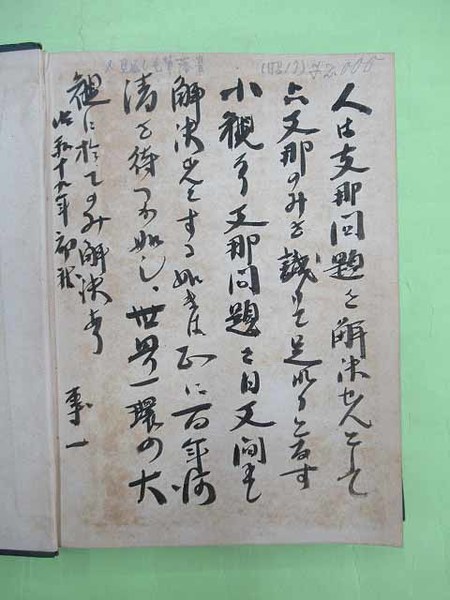 人は支那問題を解決せんとして
只支那のみを識りて足れりとなす
小観なり 支那問題を日支間にて
解決せんとする如きは正に百年河
清を待つが如し、世界一環の大
観に於てのみ解決す
昭和十九年 初秋
事一